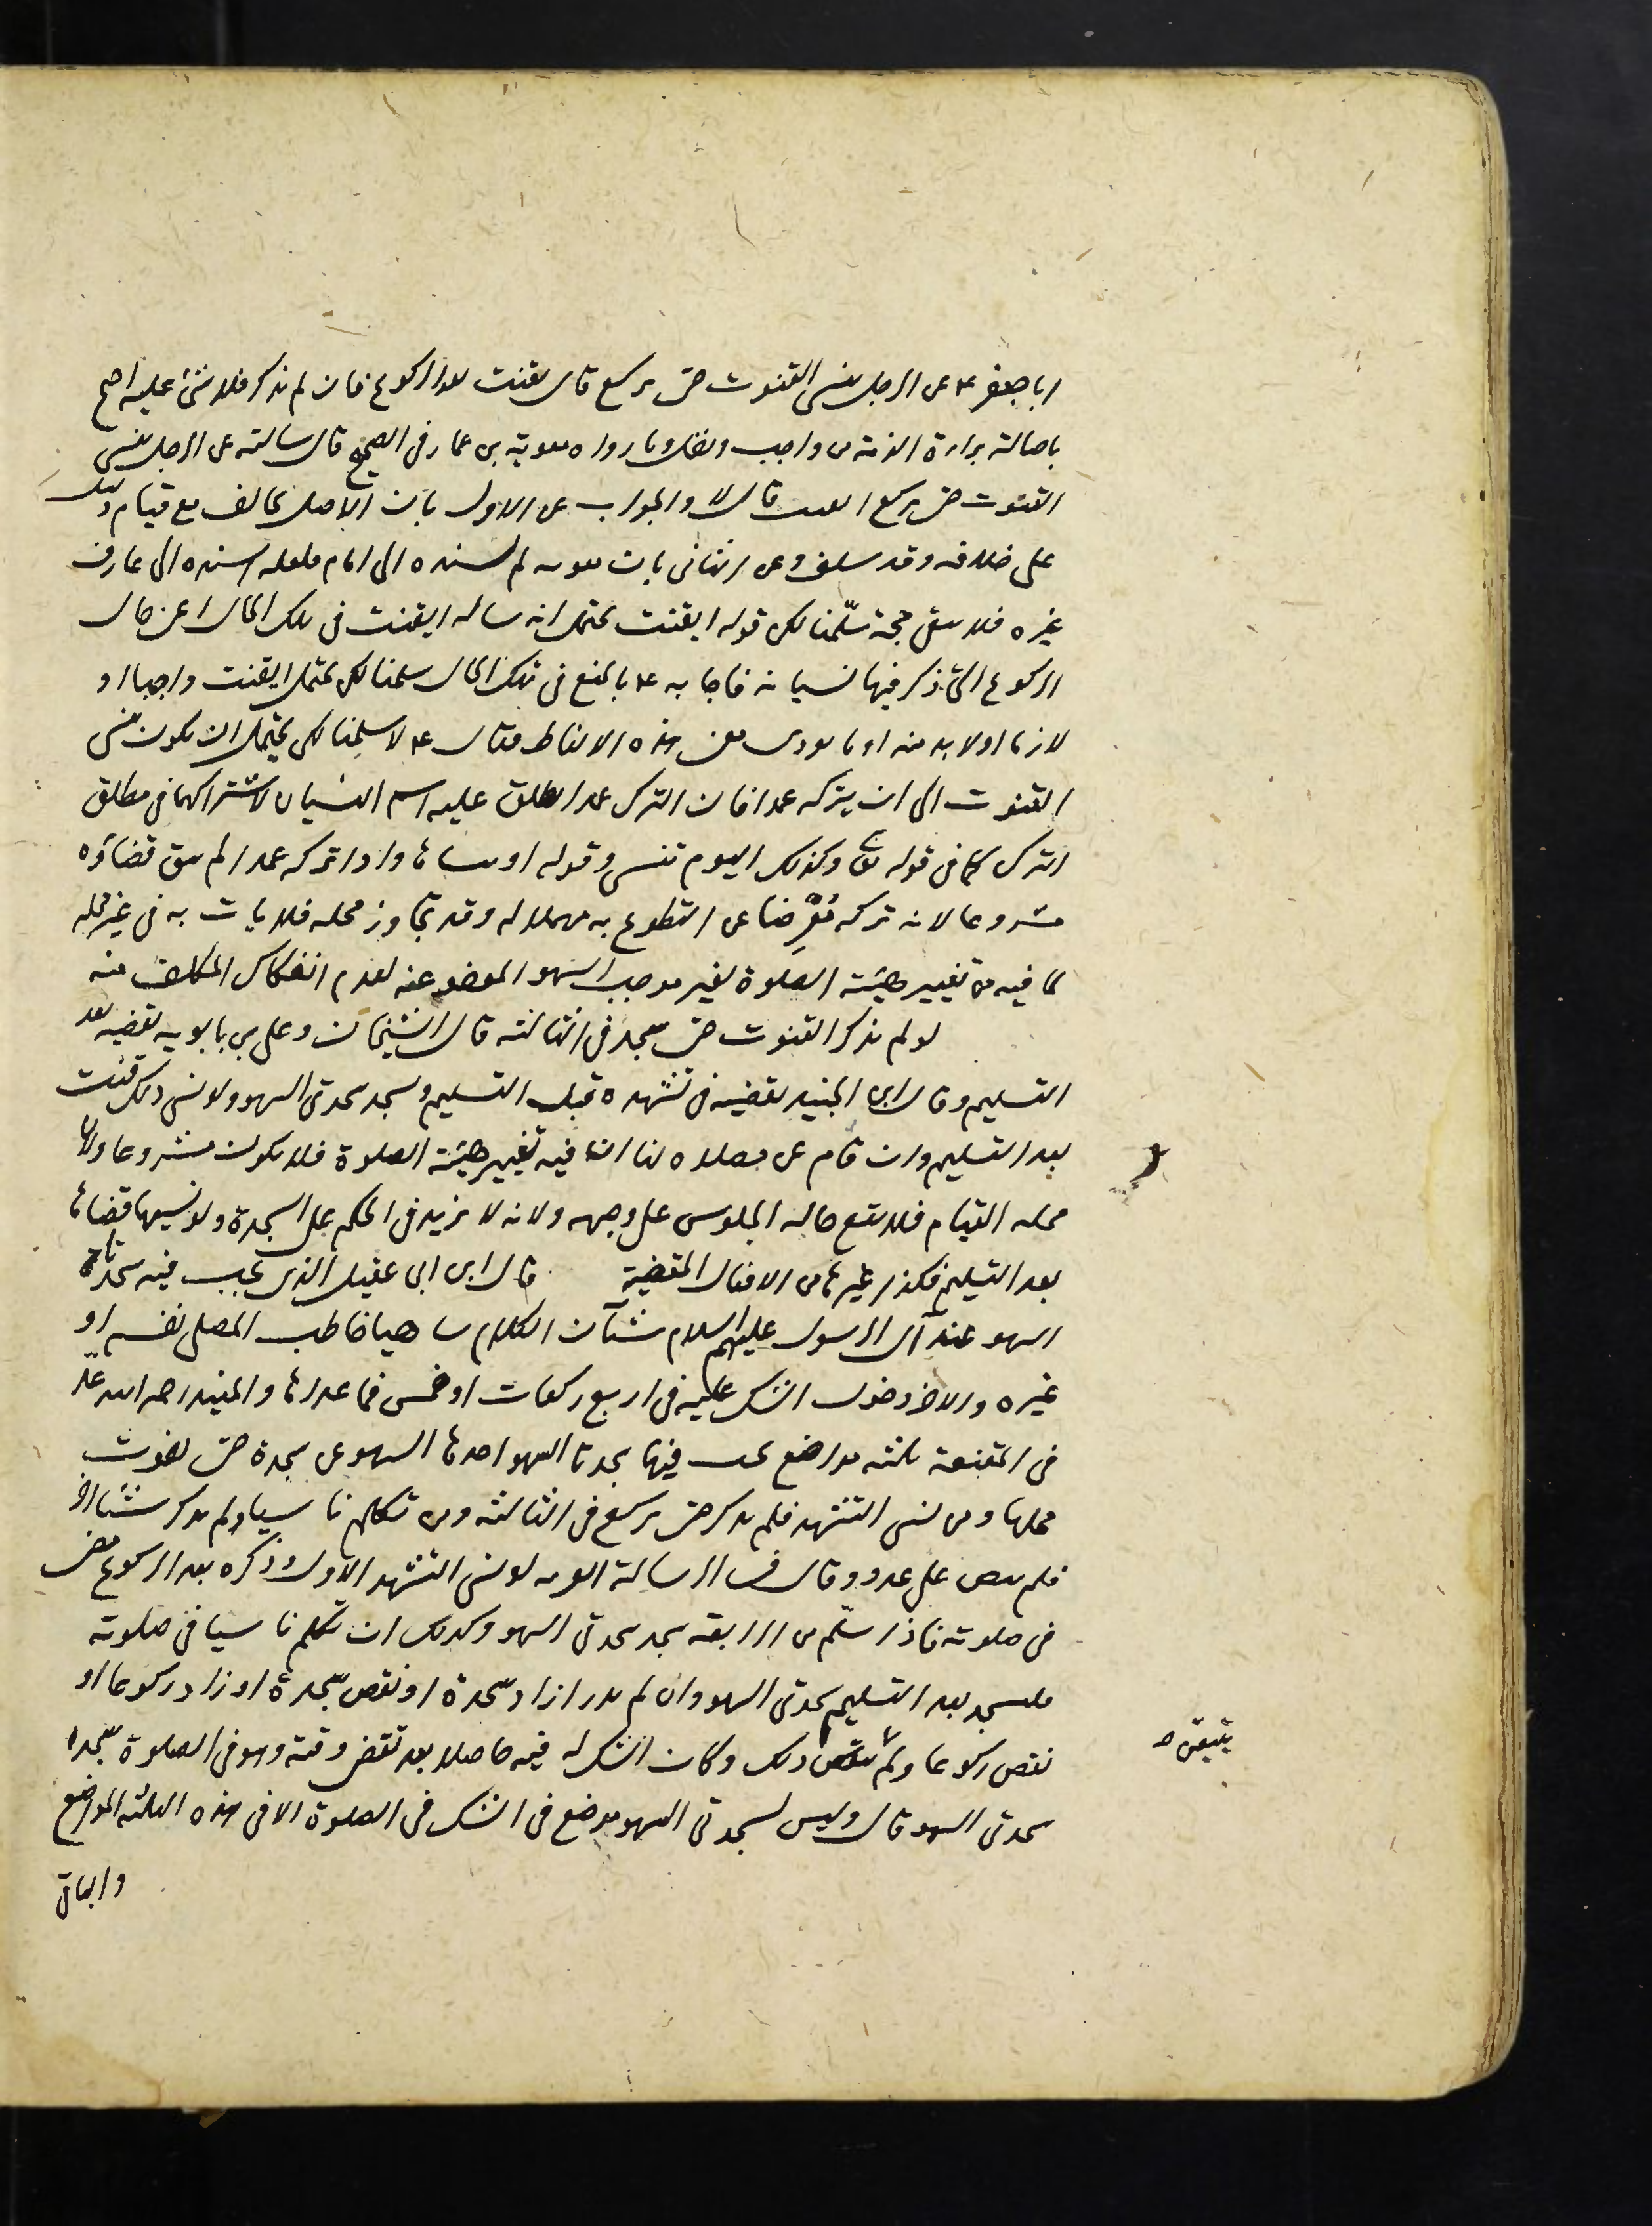 ابا جعفر ع عن الرجل ينسى القنوت حتى يركع قال يقنت بعد الركوع فان لم يذكر فلا شئ عليه احتج
باصالة براءة الذمة من واجب وبما رواه معوية بن عمار في الصحيح قال سالته عن الرجل ينسى
القنوت حتى يركع ايقنت قال لا والجواب عن الاول بان الاصل يخالف مع قيام دليل
على خلافه وقد سلف وعن الثاني بان معوية لم يسنده الى امام فلعله اسنده الى عارف
غيره فلا يبقى حجة سلّمنا لكن قوله ايقنت يحتمل انه ساله ايقنت في تلك الحال اعني حال
الركوع التي ذكر فيها نسيانه فاجابه ع بالمنع في تلك الحال سلمنا لكن يحتمل ايقنت واجبا او
لازما او لا بد منه او ما يودى معنى هذه الالفاظ فقال ع لا سلمنا لكن يحتمل ان يكون ينسى
القنوت الى ان يتركه عمدا فان الترك عمدا يطلق عليه اسم النسيان لاشتراكهما في مطلق
الترك كما في قوله تع وكذلك اليوم تنسى وقوله او ننساها واذا تركه عمدا لم يبق قضاؤه
مشروعا لانه تركه مُعْرِضا عن التطوع به مهملا له وقد تجاوز محله فلا يات به في غير محله
لما فيه من تغيير هيئة الصلوة لغير موجب السهو المعفو عنه لعدم انفكاك المكلف منه
لو لم يذكر القنوت حتى يسجد في الثالثة قال الشيخان وعلى بن بابويه يقضيه بعد
التسليم وقال ابن الجنيد يقضيه في تشهده قبل التسليم ويسجد سجدتى السهو ولو نسى ذلك قنت
بعد التسليم وان قام عن مصلاه لنا انه فيه تغيير هيئة الصلوة فلا يكون مشروعا ولان
محله القيام فلا يقع حاله الجلوس على وجهه ولانه لا يزيد في الحكم على السجدة ولو نسيها قضاها
بعد التسليم فكذا غيرها من الافعال المقضية قال ابن ابى عقيل الذى يجب فيه سجدتا
السهو عند آل الرسول عليهم السلام شيئآن الكلام ساهيا خاطب المصلى نفسه او
غيره والاخر دخول الشك عليه في اربع ركعات او خمس فما عداها والمفيد رحمه الله عدّ
في المقنعة ثلثة مواضع يجب فيها سجدتا السهو احدها السهو عن سجدة حتى يفوت
محلها ومن نسى التشهد فلم يذكر حتى يركع في الثالثة ومن تكلم ناسيا ولم يذكر شيئا اخر
فلم ينص على عدد وقال في الرسالة الغرية لو نسى التشهد الاول وذكره بعد الركوع مضى
في صلوته فاذا سلّم من الرابعة سجد سجدتى السهو وكذلك ان تكلم ناسيا في صلوته
فليسجد بعد التسليم سجدتى السهو وان لم يدر ازاد سجدة او نقص سجدة او زاد ركوعا او
نقص ركوعا ولم يتيقن ذلك وكان الشك له فيه حاصلا بعد تقضى وقته وهو في الصلوة سجد
سجدتى السهو قال وليس لسجدتى السهو موضع في الشك في الصلوة الا في هذه الثلثة المواضع
والباقى
يتيقن ص